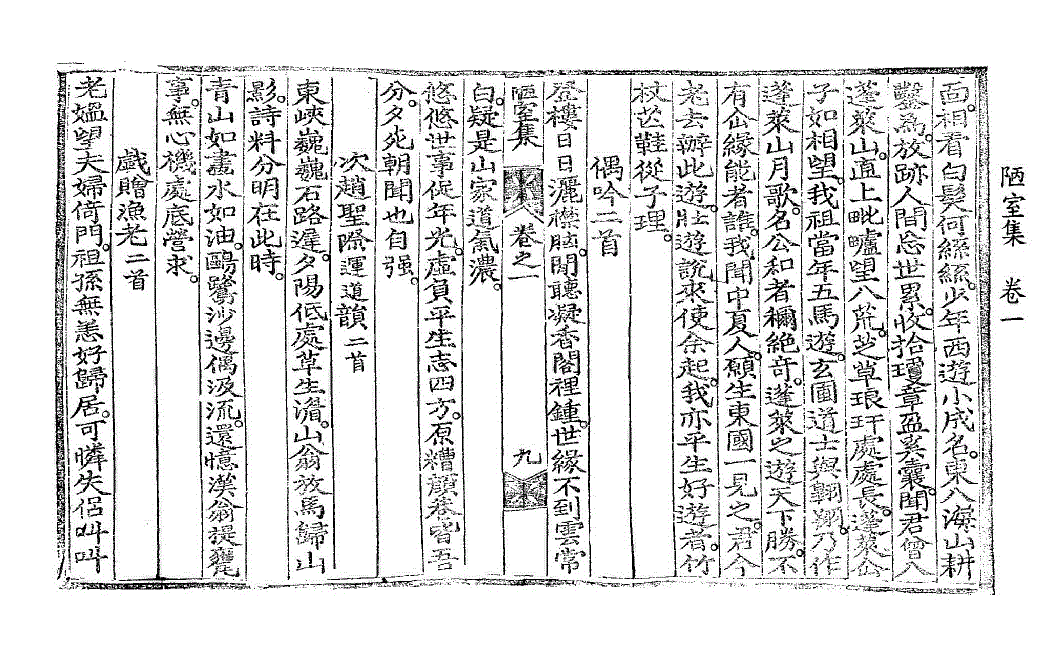 陋室集　卷一
面。相看白髮何絲絲。少年西遊小成名。東入深山耕
鑿爲。放跡人間忘世累。收拾瓊章盈奚囊。聞君曾入
蓬萊山。直上毗盧望八荒。芝草琅玕處處長。蓬萊公
子如相望。我祖當年五馬遊。玄圃道士與翺翔。乃作
蓬萊山月歌。名公和者稱絶奇。蓬萊之遊天下勝。不
有仙緣能者誰。我聞中夏人。願生東國一見之。君今
老去辦此遊。壯遊說來使余起。我亦平生好遊者。竹
杖芒鞋從子理。
偶吟二首
登樓日日灑襟胸。閒聽凝香閣裡鍾。世緣不到雲常
白。疑是山家道氣濃。
陋室集　卷之一　九
悠悠世事促年光。虛負平生志四方。原糟顔巷皆吾
分。夕死朝聞也自强。
次趙聖際運道韻二首
東峽巍巍石路遲。夕陽低處草生湄。山翁放馬歸山
影。詩料分明在此時。
靑山如畫水如油。鷗鷺沙邊偶汲流。還憶漢翁提甕
事。無心機處底營求。
戱贈漁老二首
老媼望夫婦倚門。祖孫無恙好歸居。可憐失侣叫叫